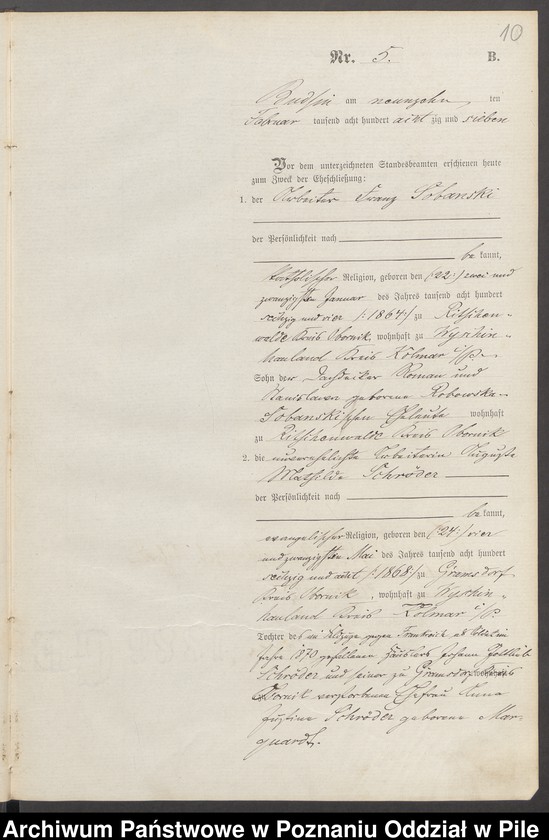 10
Nr. 5. B.
Budsin am neunzehn ten
Februar tausend acht hundert acht zig und sieben
Vor dem unterzeichneten Standesbeamten erschienen heute
zum Zweck der Eheschließung:
1. der Arbeiter Franz Sobanski
der Persönlichkeit nach
be kannt,
katholischer Religion, geboren den (22:) zwei und
zwanzigsten Januar des Jahres tausend acht hundert
sechzig und vier /:1864:/ zu Ritschen-
walde Kreis Obornik, wohnhaft zu Wyschin-
hauland Kreis Kolmar i/P.
Sohn der Dachdecker Roman und
Stanislawa geborene Robowska-
Sobanskischen Eheleute wohnhaft
zu Ritschenwalde Kreis Obornik
2. die unverehelichte Arbeiterin Auguste
Mathilde Schröder
der Persönlichkeit nach
be kannt,
evangelischer Religion, geboren den (24:) vier
und zwanzigsten Mai des Jahres tausend acht hundert
sechzig und acht /:1868:/ zu Gramsdorf
Kreis Obornik, wohnhaft zu Wyschin-
hauland Kreis Kolmar i/P.
Tochter des im Feldzuge gegen Frankreich als Soldat im
Jahre 1870 gefallenen Häuslers Johann Gottlieb
Schröder und seiner zu Gramsdorf Kreis
Obornik verstorbenen Ehefrau Anna
Justine Schröder geborene Mar-
quardt.
Archiwum Państwowe w Poznaniu Oddział w Pile